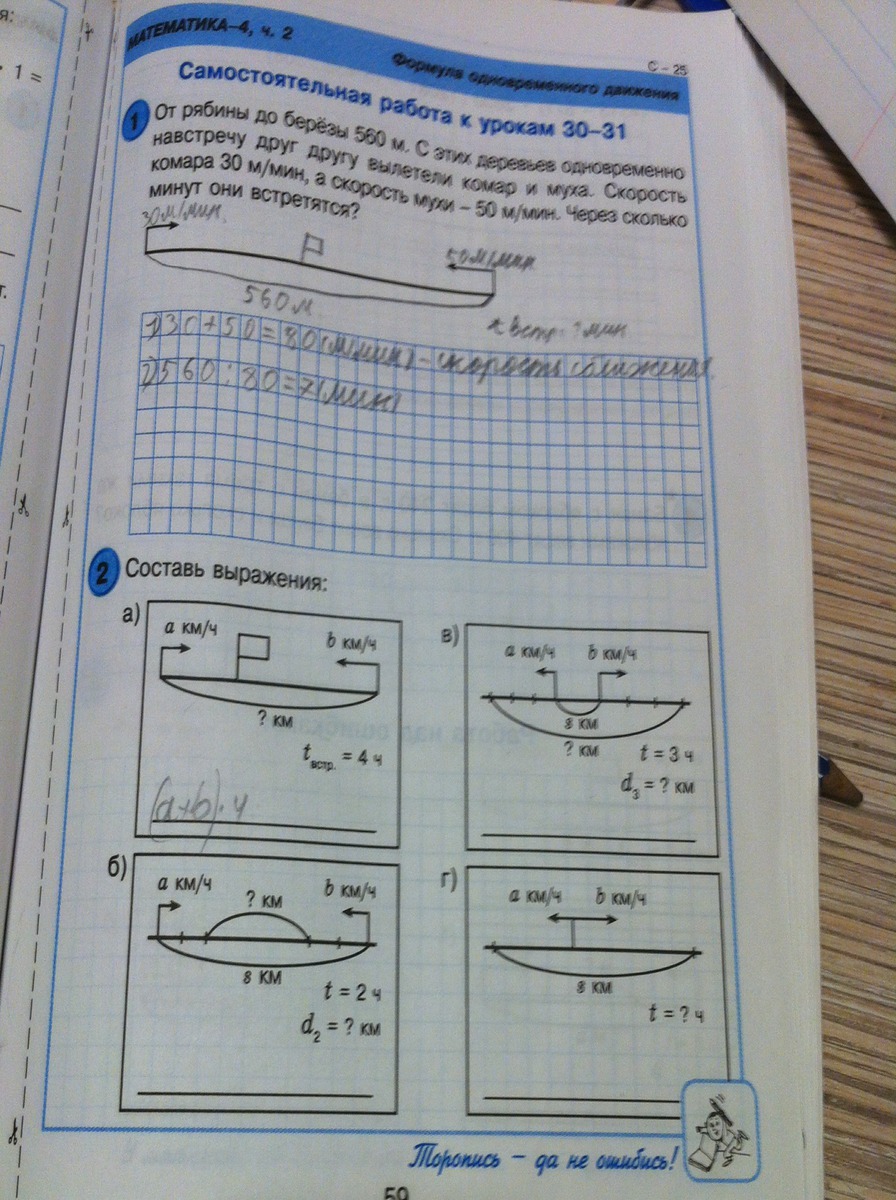 я:
· 1 =
МАТЕМАТИКА–4, ч. 2
Формула одновременного движения
С – 25
Самостоятельная работа к урокам 30–31
1 От рябины до берёзы 560 м. С этих деревьев одновременно
навстречу друг другу вылетели комар и муха. Скорость
комара 30 м/мин, а скорость мухи – 50 м/мин. Через сколько
минут они встретятся?
30м/мин.
50м/мин
560м
t встр. ? мин
1) 30+50=80(м/мин) – скорость сближения.
2) 560:80=7(мин)
2 Составь выражения:
а)
a км/ч
b км/ч
? км
t встр. = 4 ч
(a+b)·4
в)
a км/ч b км/ч
s км
? км t = 3 ч
d₃ = ? км
б)
a км/ч ? км b км/ч
s км
t = 2 ч
d₂ = ? км
г)
a км/ч b км/ч
s км
t = ? ч
Торопись – да не ошибись!
59